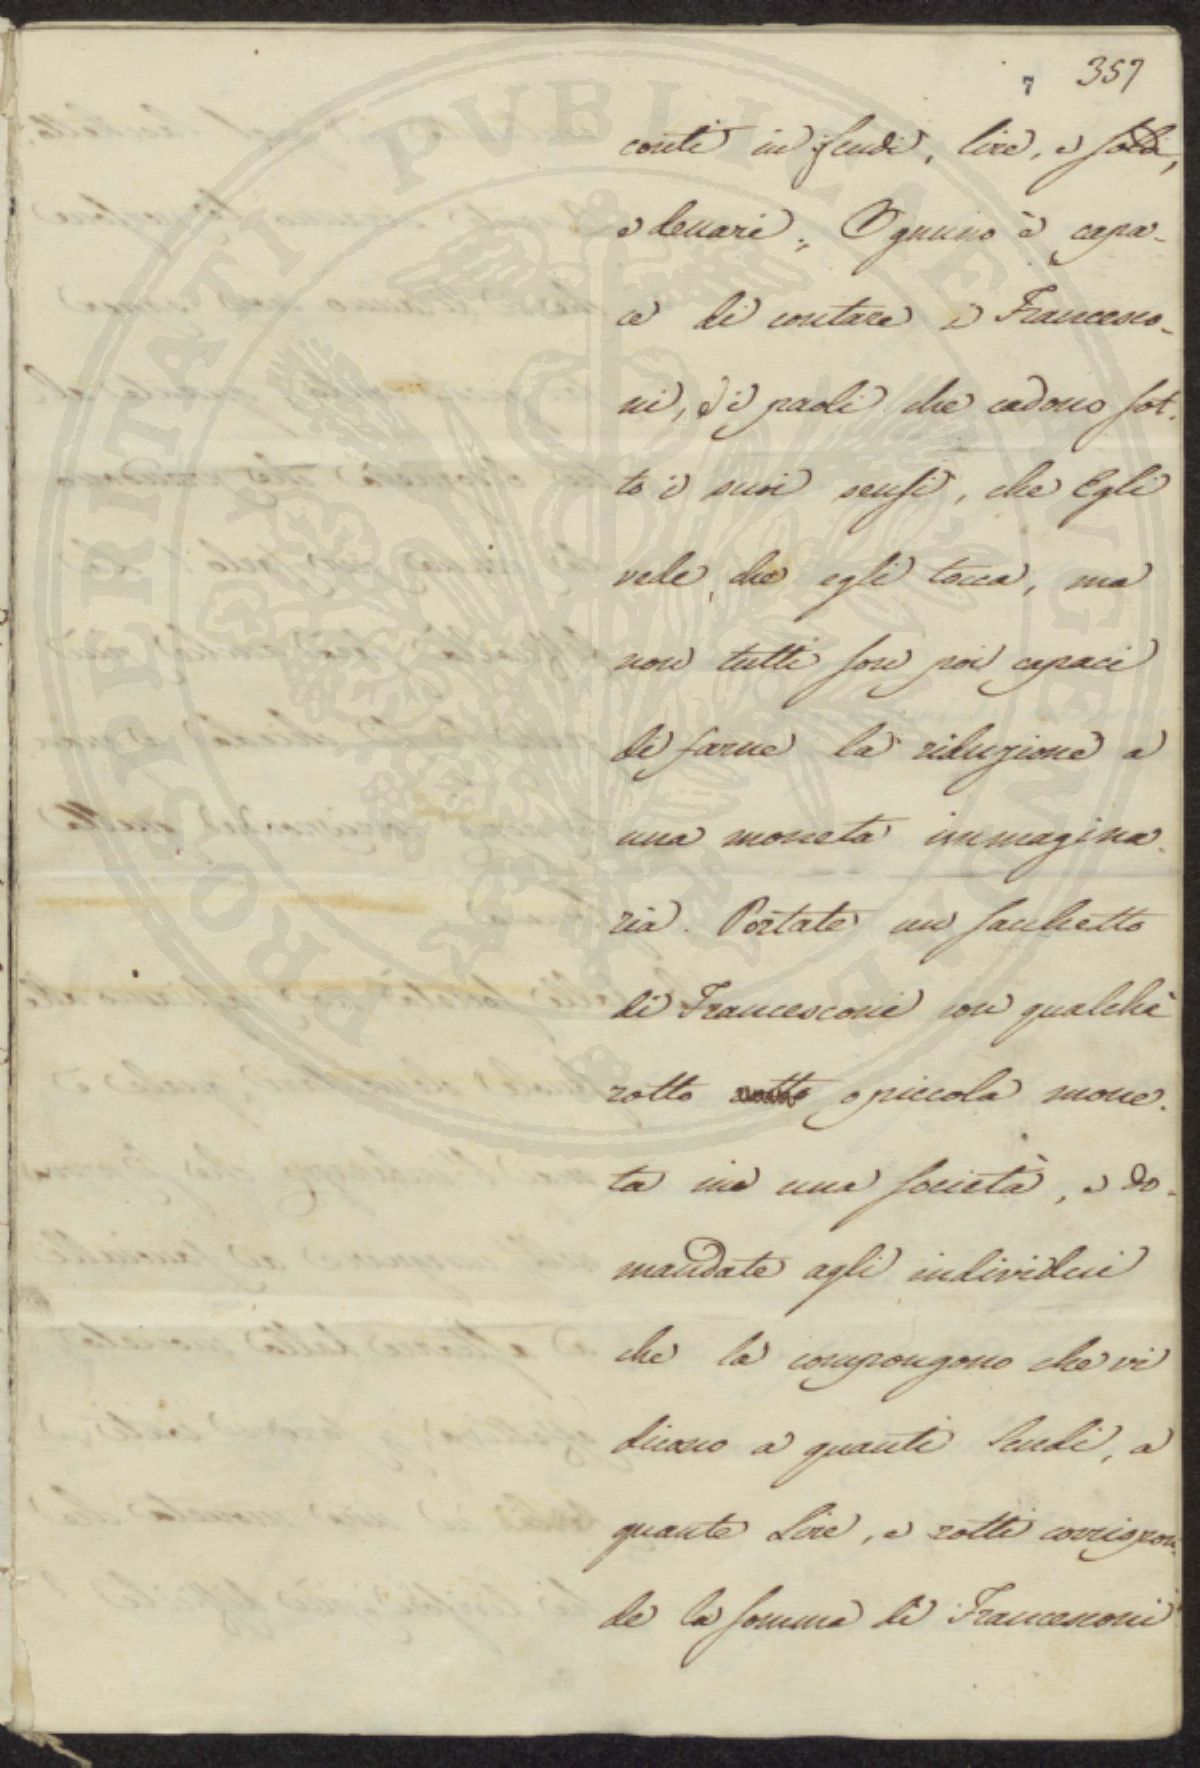 7 357
PROSPERITATI PUBLICAE AUGENDAE
conti in scudi, lire, e soldi,
e denari. Ognuno è capa-
ce di contare i Francesco-
ni, e i paoli che cadono sot-
to i suoi sensi, che Egli
vede, che egli tocca, ma
non tutti son poi capaci
di farne la riduzione a
una moneta immagina-
ria. Portate un sacchetto
di Francesconi con qualche
rotto o piccola mone-
ta in una società, e do-
mandate agli individui
che la compongono che vi
dicano a quanti Scudi, a
quante Lire, e rotti corrispon-
de la somma di Francesconi